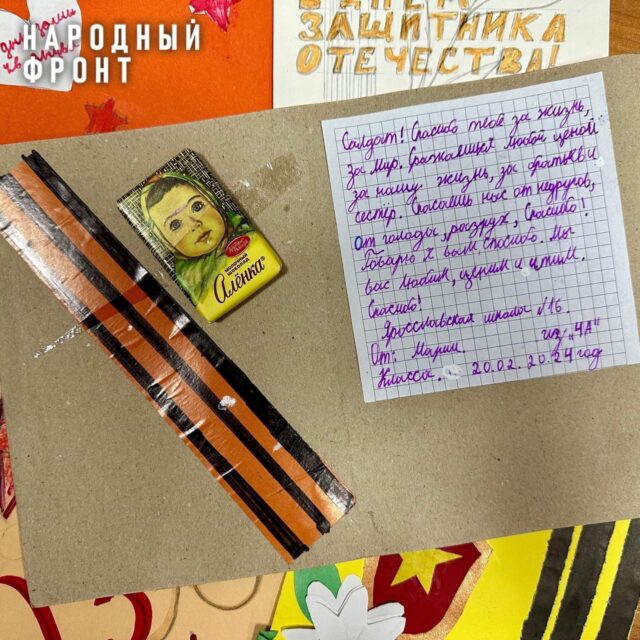 НАРОДНЫЙ
ФРОНТ
С ДНЁМ
ЗАЩИТНИКА
ОТЕЧЕСТВА!
МОЛОЧНЫЙ
ШОКОЛАД
Алёнка
Солдат! Спасибо тебе за жизнь,
за мир. Сражаешься любой ценой
за нашу жизнь, за братьев и
сестёр. Спасаешь нас от недругов,
от голода, разрух, Спасибо!
Говорю я вам спасибо. Мы
вас любим, ценим и чтим.
Спасибо!
Ярославская школа №16.
От: Марии. из „4А"
Класса. 20.02.2024 год